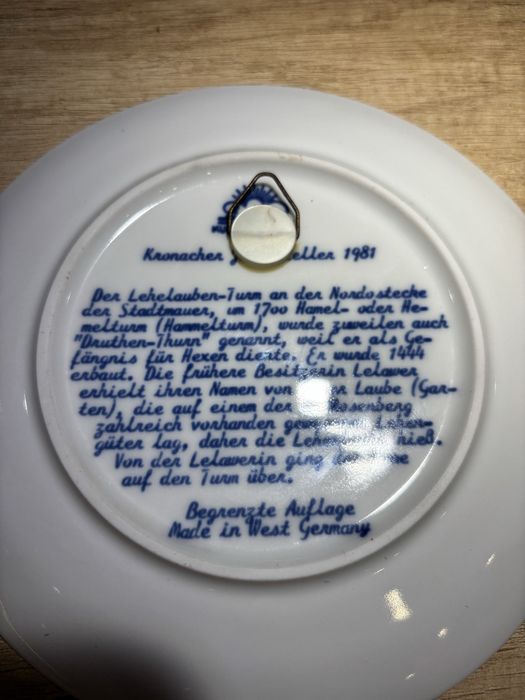 Kronacher eller 1981
Der Lehelauben-Turm an der Nordostecke
der Stadtmauer, um 1700 Hamel- oder He-
melturm (Hammelturm), wurde zuweilen auch
"Druthen-Thurn" genannt, weil er als Ge-
fängnis für Hexen diente. Er wurde 1444
erbaut. Die frühere Besitzerin Lelawer
erhielt ihren Namen von Laube (Gar-
ten), die auf einem der Rosenberg
zahlreich vorhanden Lehen-
güter lag, daher die hieß.
Von der Lelawerin ging
auf den Turm über.
Begrenzte Auflage
Made in West Germany